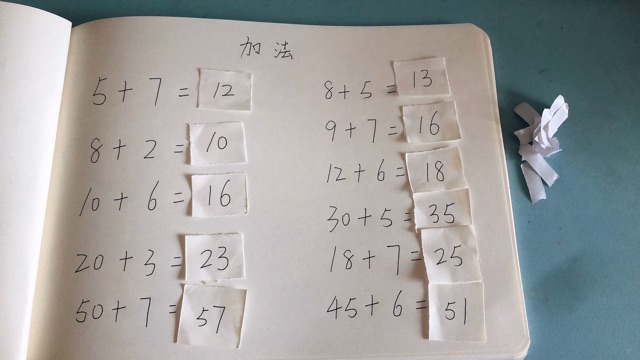 加法
5+7=12
8+2=10
10+6=16
20+3=23
50+7=57
8+5=13
9+7=16
12+6=18
30+5=35
18+7=25
45+6=51